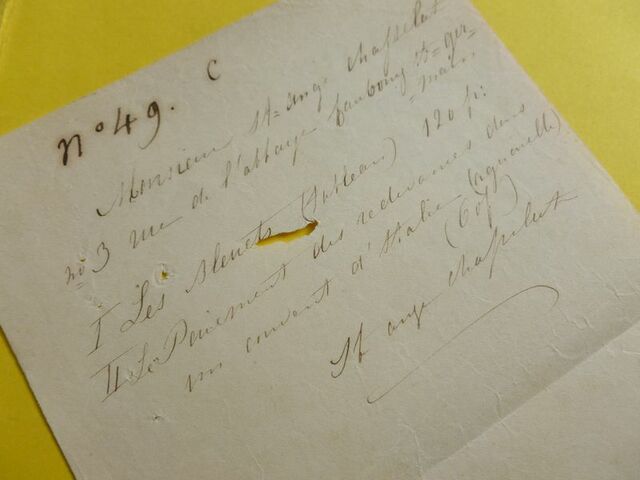 n° 49. C
Monsieur St= ange chaselat
n° 3 rue de l'abbaye faubourg St= ger-
=main
I Les (tableau) 120 f:
II Le Paiement des redevances dans
un couvent d'Italie (aquarelle)
(60f)
St ange chaselat